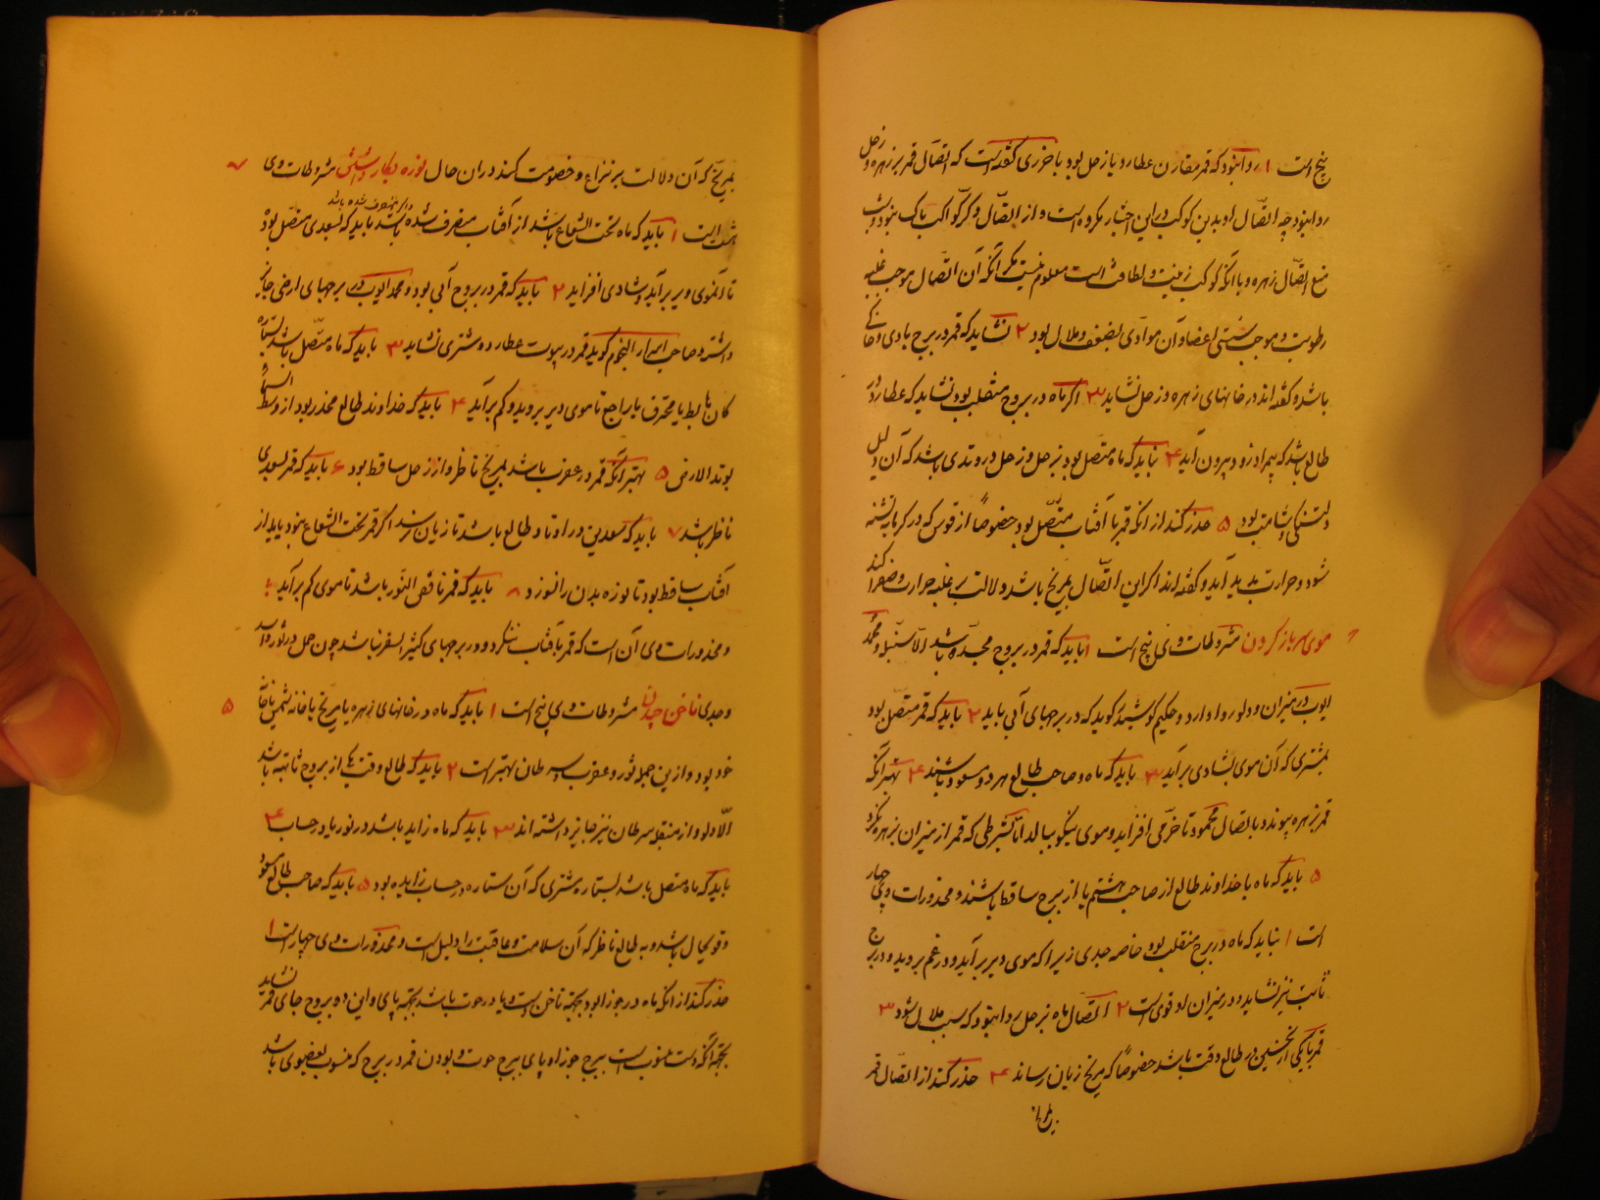 پنج است ۱ روا نبود که قمر مقارن عطارد یا زحل بود با خزری گفته است که اتصال قمر بزهره و زحل
روا نبود چه اتصال او بدین کوکب درین اختیار مکروه است و از اتصال دیگر کواکب باک نبود
منع اتصال زهره و با آنکه کوکب زینت و لطافت است معلوم نیست مگر آنکه آن اتصال موجب غلبه
رطوبت و موجب سستی اعضا و آن مؤدی بضعف و ملال بود ۲ نشاید که قمر در برج بادی و خاکی
باشد و گفته اند در خانهای زهره و زحل نشاید ۳ اگر ماه در بروج منقلب بود نشاید که عطارد در
طالع باشد که بیمار زود بیرون آید ۴ نباید که ماه متصل بود بزحل و زحل در وتدی باشد که آن دلیل
دلتنگی و شامت بود ۵ حذر کنند از آنکه قمر با آفتاب متصل بود خصوصاً از قوس که در گرمابه تشنه
شود و حرارت پدید آید و گفته اند اگر این اتصال بمریخ باشد دلالت بر غلبه حرارت و صفرا کند
موی سر باز کردن مشروطات وی پنج است ۱ باید که قمر در بروج مجسده باشد الا سنبله و محمد
ایوب در میزان و دلو روا دارد و حکیم کوشیار گوید که در برجهای آبی باید ۲ باید که قمر متصل بود
بمشتری که آن موی بشادی برآید ۳ باید که ماه و صاحب طالع هر دو مسعود باشند ۴ بهتر آنکه
قمر بزهره پیوندد باتصال محمود تا خرمی افزاید و موی نیکو ببالد اما بشرطی که قمر از میزان بزهره نگرد
۵ باید که ماه با خداوند طالع از صاحب هشتم یا از برج ساقط باشند و محذورات وی چهار
است ۱ نباید که ماه در برج منقلب بود خاصه جدی زیرا که موی دیر برآید و در غم بروید و در برج
ثابت نیز نشاید و در میزان او قوی است ۲ اتصال ماه بزحل روا نبود که سبب ملال شود ۳
قمر با یکی از نحسین در طالع وقت باشد خصوصاً که مریخ زیان رساند ۴ حذر کنند از اتصال قمر
بمریخ که آن دلالت بر نزاع و خصومت کند در آن حال نوره بکار داشتن مشروطات وی ۷
هشت است ۱ باید که ماه تحت الشعاع باشد از آفتاب منصرف شده باشد باید که بسعدی متصل بود
تا آن موی دیر برآید و شادی افزاید ۲ باید که قمر در بروج آبی بود و محمد ایوب در برجهای ارضی جایز
داشته و صاحب اسرار النجوم گوید قمر در بیوت عطارد و مشتری نشاید ۳ باید که ماه متصل باشد بستاره
کان هابط یا محترق یا راجع تا موی دیر بروید و کم برآید ۴ باید که خداوند طالع منحدر بود از وسط السماء
بوتد الارض ۵ بهتر آنکه قمر در عقرب باشد بمریخ ناظر و از زحل ساقط بود ۶ باید که قمر بسعدی
ناظر باشد ۷ باید که سعدین در اوتاد طالع باشد تا زیان نرسد اگر قمر تحت الشعاع نبود باید از
آفتاب ساقط بود تا نوره بدن را نسوزد ۸ باید که قمر ناقص النور باشد تا موی کم برآید
و محذورات وی آن است که قمر بآفتاب ننگرد و در برجهای کثیر الشعر نباشد چون حمل و ثور و اسد
و جدی ناخن چیدن مشروطات وی پنج است ۱ باید که ماه در خانهای زهره یا مریخ یا خانه شمس یا خانه ۵
خود بود و ازین جمله ثور و عقرب و سرطان بهتر است ۲ باید که طالع وقت یکی از بروج ثابته باشد
الا دلو و از منقلبه سرطان نیز جایز داشته اند ۳ باید که ماه زاید باشد در نور یا در حساب ۴
باید که ماه متصل باشد بستاره مشتری که آن ستاره در حساب زایده بود ۵ باید که صاحب طالع مسعود
و قوی حال باشد و به طالع ناظر که آن سلامت و عاقبت را دلیل است و محذورات وی چهار است ۱
حذر کنند از آنکه ماه در جوزا بود بجهة ناخن دست و یا در حوت باشد بجهة پای و این دو بروج جای قمر نشاید
بجهة آنکه دست منسوب است ببرج جوزا و پای ببرج حوت و بودن قمر در برجی که منسوب بعضوی باشد